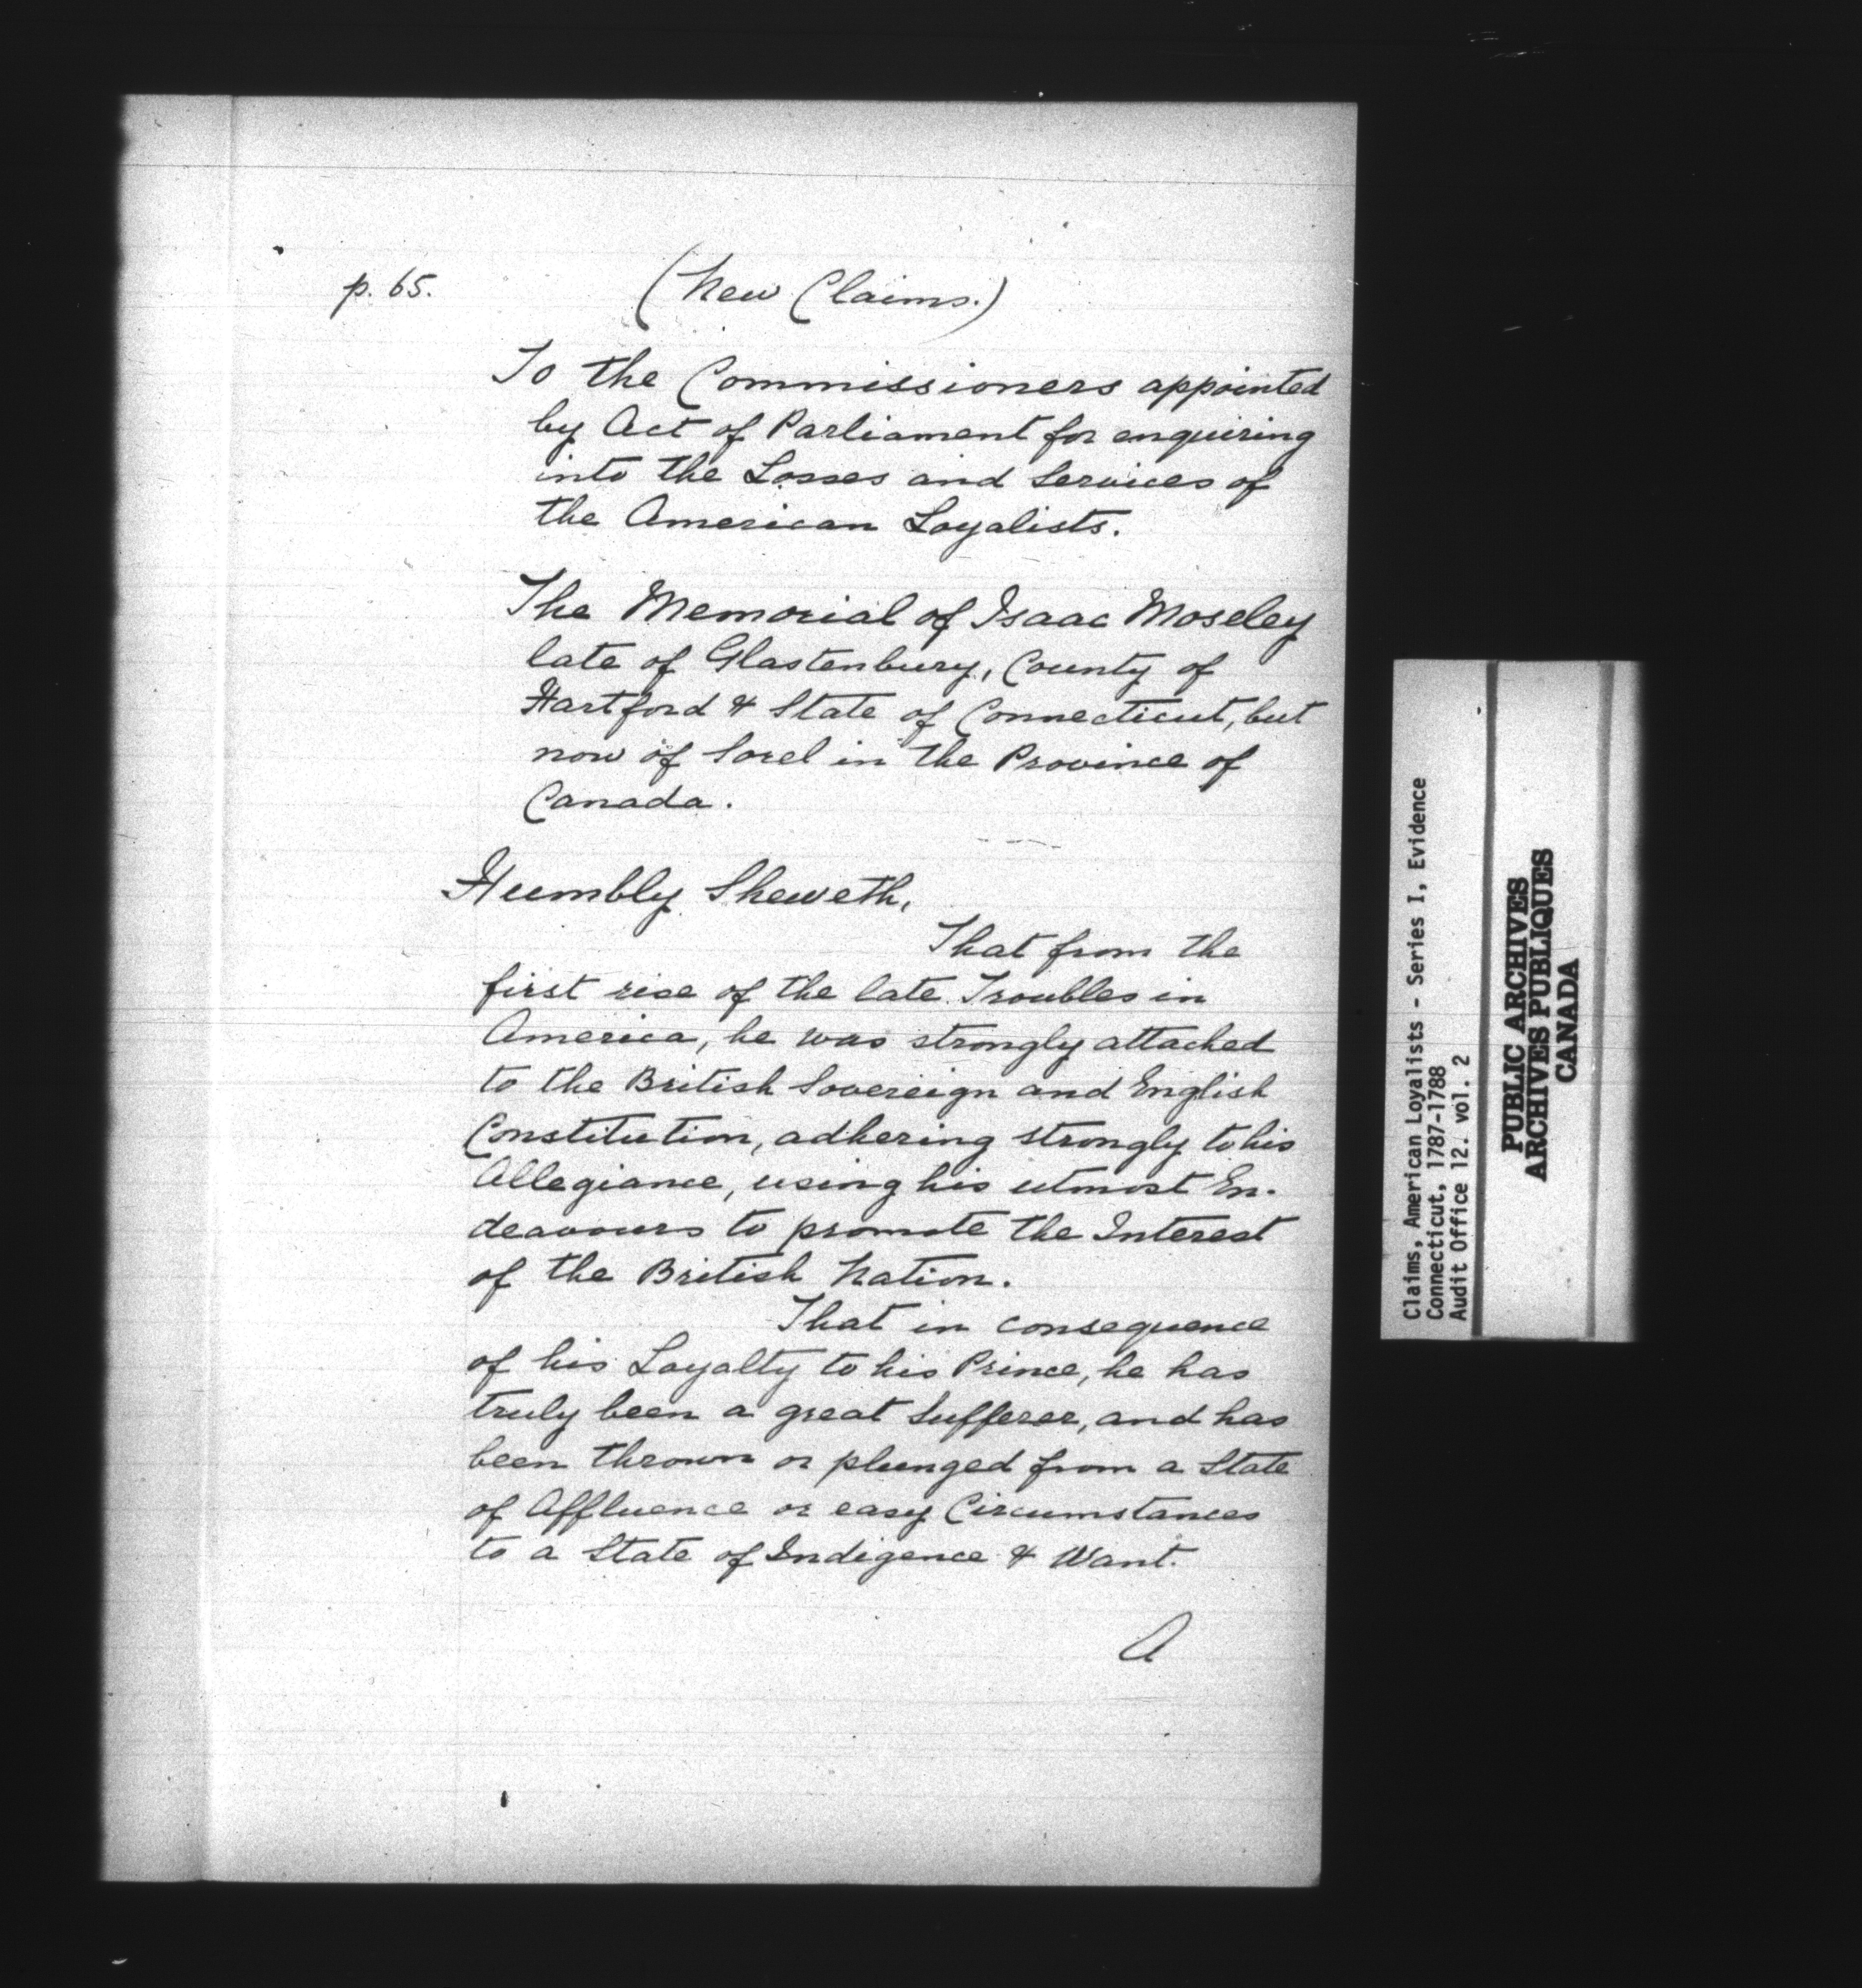 p. 65.
(New Claims.)
To the Commissioners appointed
by Act of Parliament for enquiring
into the Losses and Services of
the American Loyalists.
The Memorial of Isaac Moseley
late of Glastenbury, County of
Hartford & State of Connecticut, but
now of Sorel in the Province of
Canada.
Humbly Sheweth,
That from the
first rise of the late Troubles in
America, he was strongly attached
to the British Sovereign and English
Constitution, adhering strongly to his
Allegiance, using his utmost En-
deavours to promote the Interest
of the British Nation.
That in consequence
of his Loyalty to his Prince, he has
truly been a great Sufferer, and has
been thrown or plunged from a State
of Affluence or easy Circumstances
to a State of Indigence & Want.
A
Claims, American Loyalists - Series I, Evidence
Connecticut, 1787-1788
Audit Office 12. vol. 2
PUBLIC ARCHIVES
ARCHIVES PUBLIQUES
CANADA